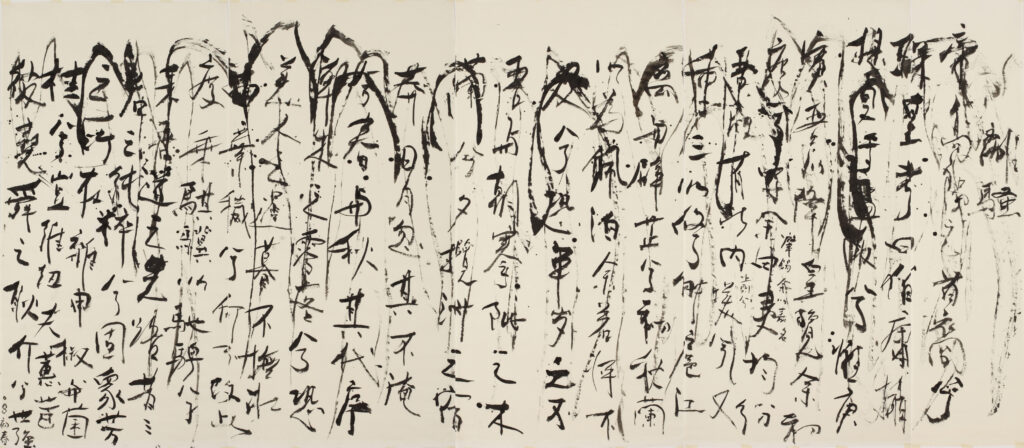 離騷
帝高陽之苗裔兮
朕皇考曰伯庸攝
提貞于孟陬兮惟庚
寅吾以降皇覽余初
度兮字余曰靈均紛
肇錫余以嘉名
吾既有此內美兮又
重之以修兮能扈江
離與辟芷兮紉秋蘭
以為佩汨余若將不
及兮恐年歲之不
吾與朝搴阰之木
蘭兮夕攬洲之宿
莽日月忽其不淹
兮春與秋其代序
草木之零落兮恐
美人之遲暮不撫壯
而棄穢兮何不改此
度乘騏驥以馳騁兮
來吾道夫先路昔三
后之純粹兮固眾芳
之所在雜申椒與菌
桂兮豈維紉夫蕙茝
彼堯舜之耿介兮世强
08初春